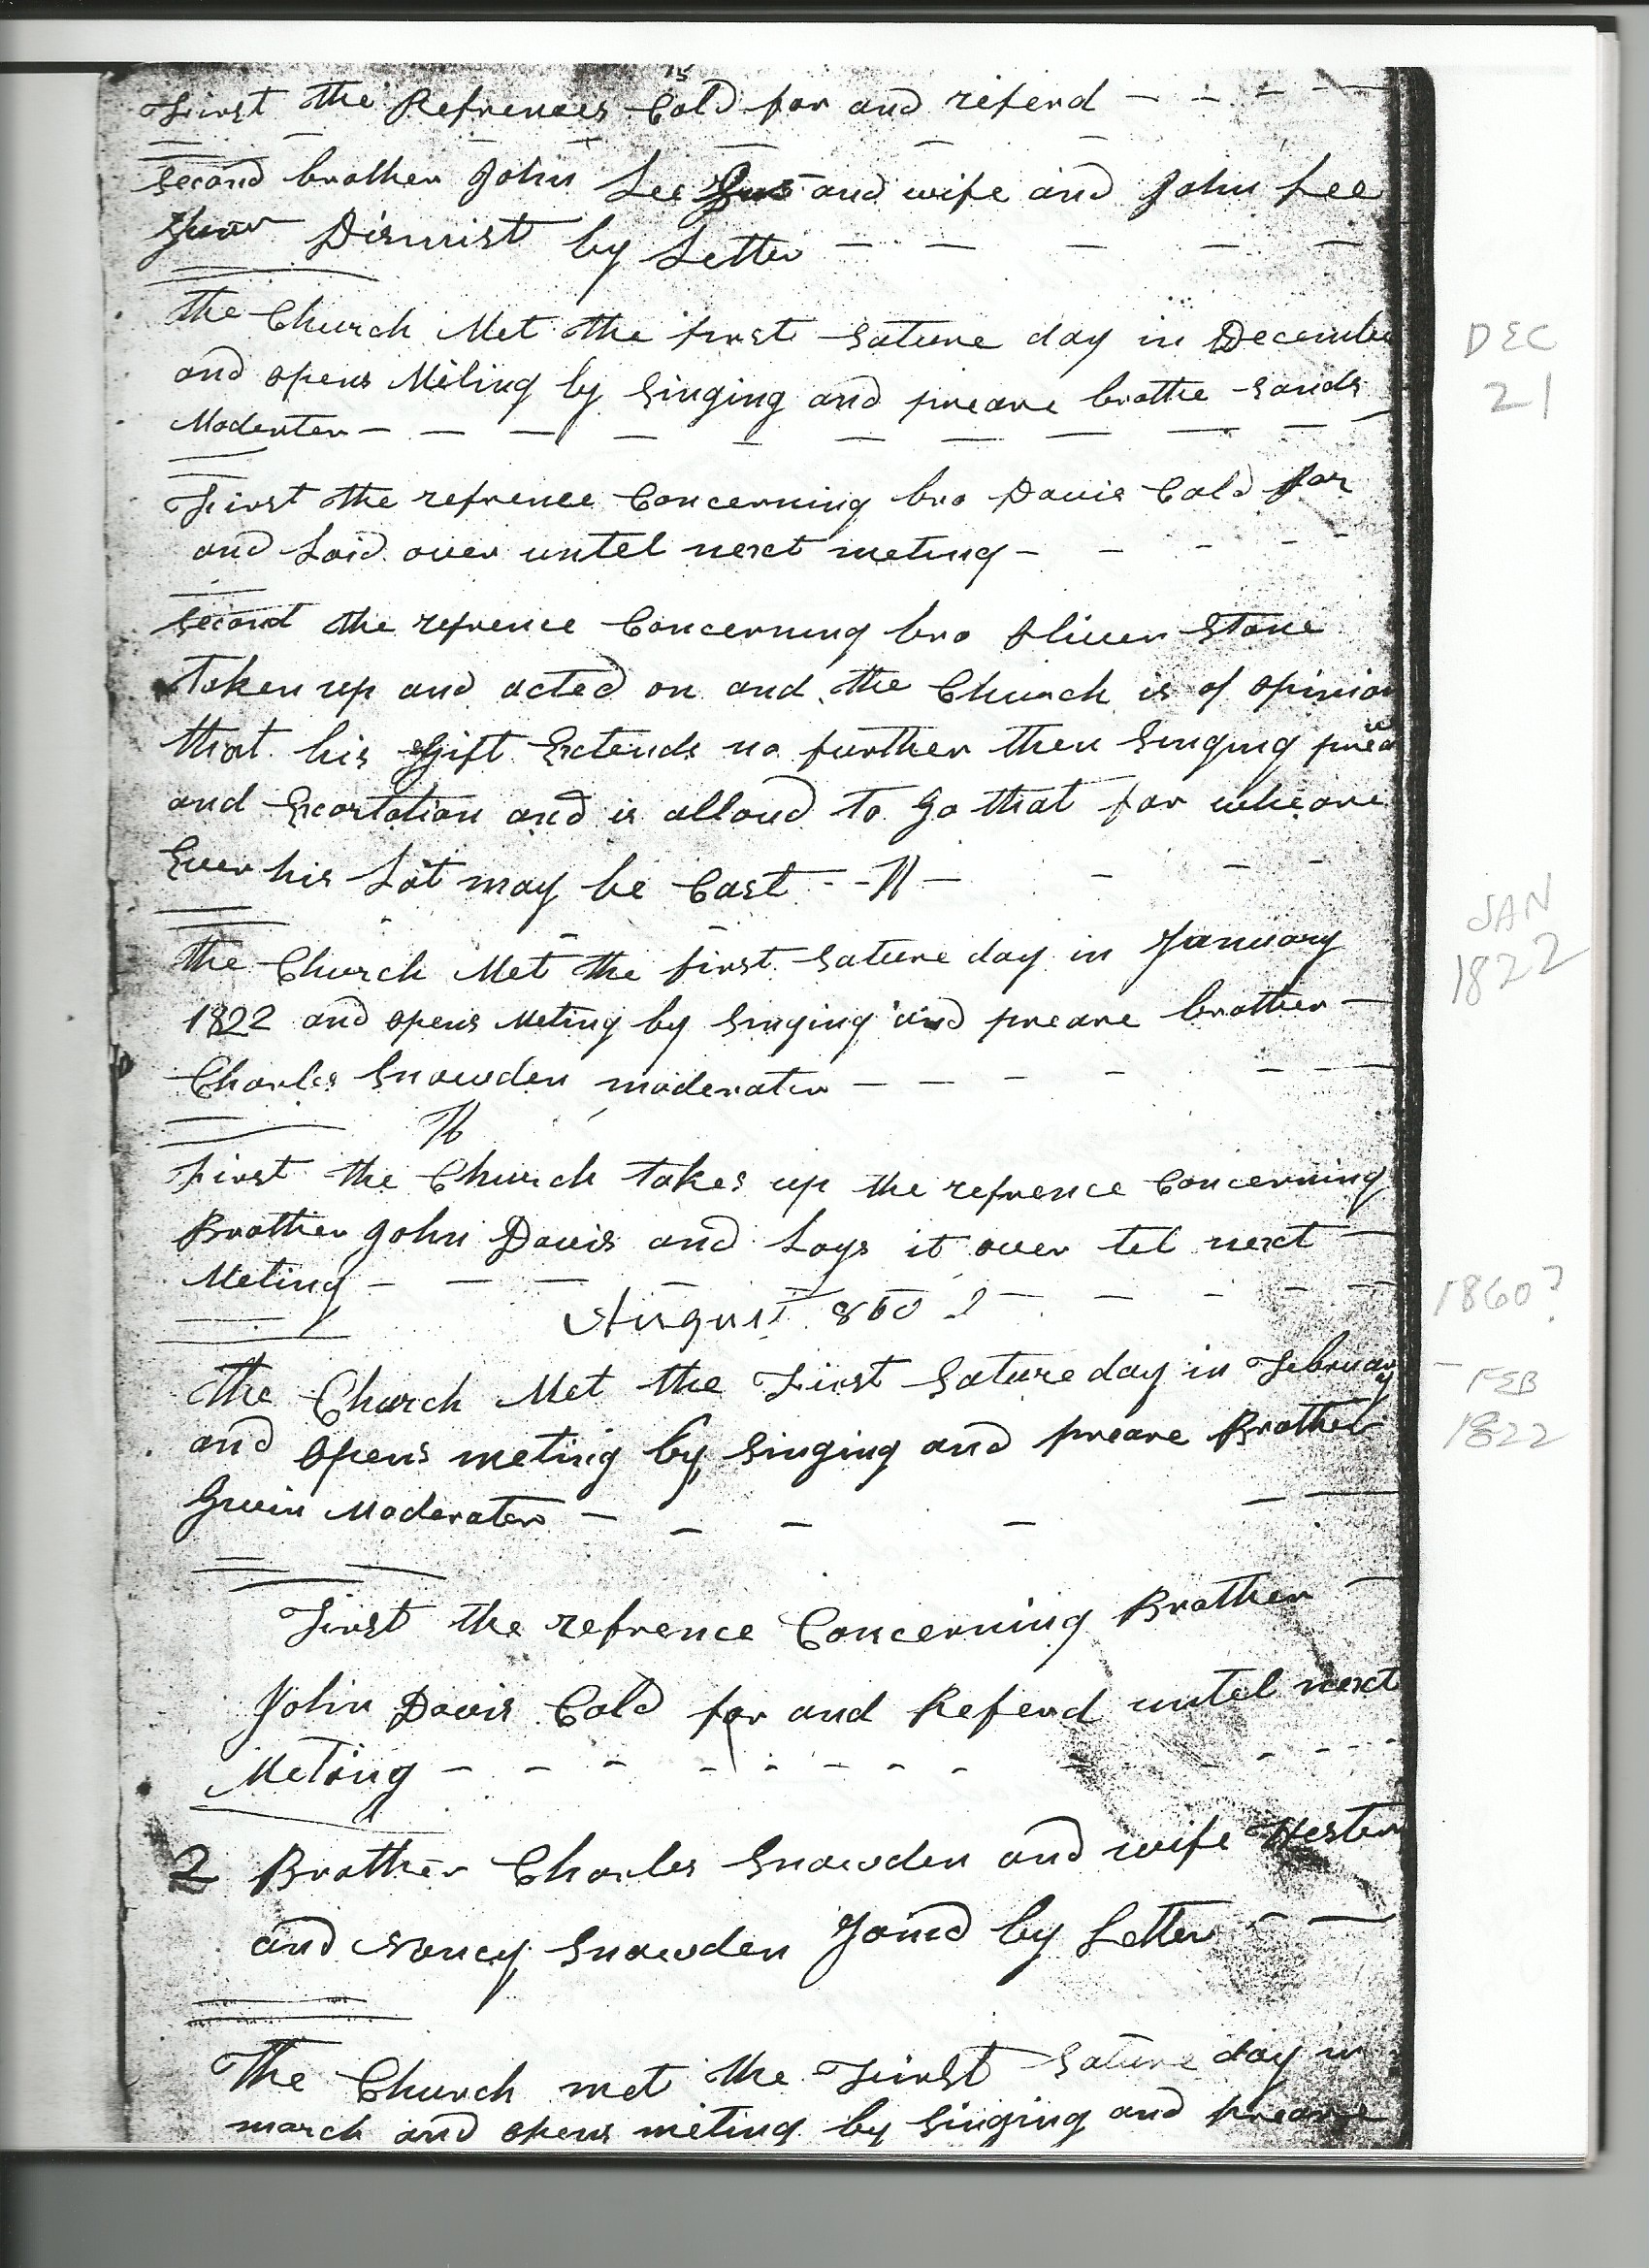 First the Refrences is Cold for and referd
Second brother John Lee and wife and John Lee
Junr Dismist by Letter
the Church Met the first Sature day in December
DEC
and opens Meting by Singing and preare brothe Sands
21
Moderter
First the refrence Concerning bro Davis Cold for
and Laid over untel next meting
Second the refrence Concerning bro Oliver Stone
taken up and acted on and the Church is of opinion
that his Gift Extends no further then Singing
and Excortation and is alloud to Go that far wheare
Ever his Lot may be Cast
JAN
the Church Met the first Sature day in January
1822
1822 and opens Meting by Singing and preare brother
Charles Snowden moderater
First the Church takes up the refrence Concerning
Brother John Davis and Lays it over tel next
Meting
1860?
August 860
The Church Met the First Sature day in February
FEB
and opens meting by Singing and preare Brother
1822
Gwin Moderater
First the refrence Concerning Brother
John Davis Cold for and Referd untel next
Meting
2 Brother Charles Snowden and wife Hester
and Nancy Snowden Joind by Letter
The Church met the First Sature day in
march and opens meting by Singing and preare